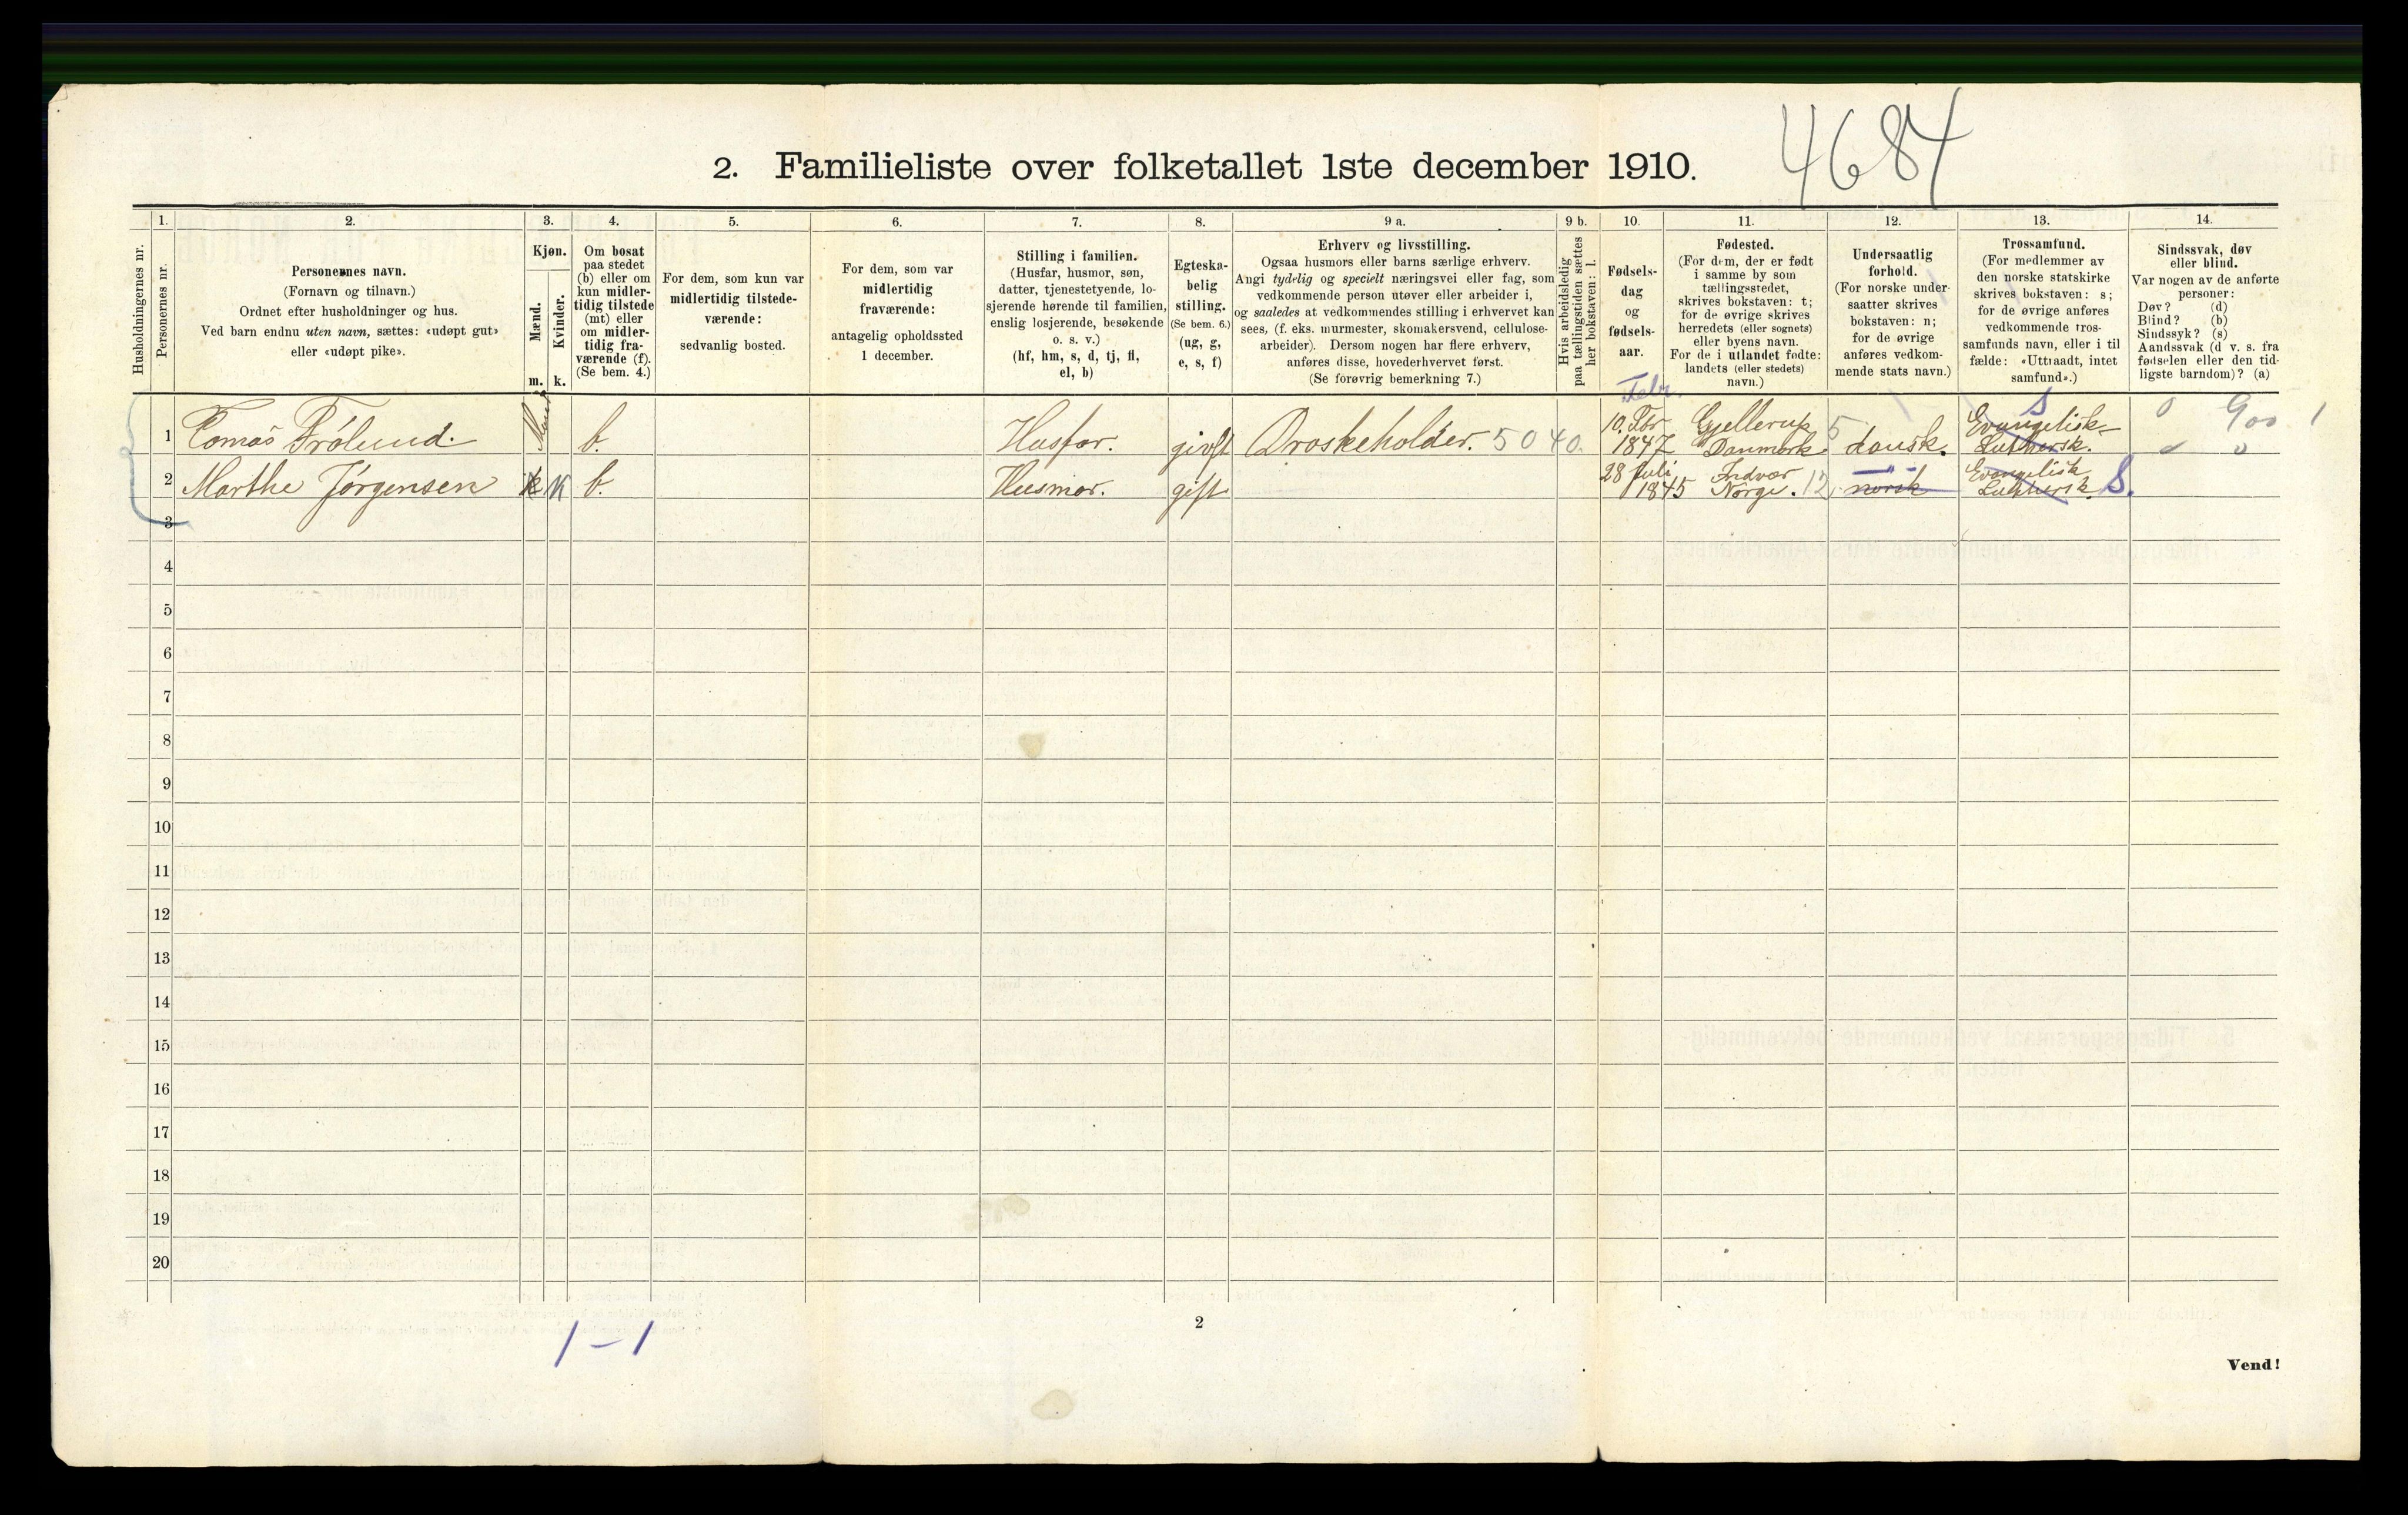 4684
2. Familieliste over folketallet 1ste december 1910.
Husholdningernes nr.
1.
Personernes nr.
2.
Personernes navn.
(Fornavn og tilnavn.)
Ordnet efter husholdninger og hus.
Ved barn endnu uten navn, sættes: «udøpt gut»
eller «udøpt pike».
3.
Kjøn.
Mænd.
Kvinder.
m. k.
4.
Om bosat
paa stedet
(b) eller om
kun midler-
tidig tilstede
(mt) eller
om midler-
tidig fra-
værende (f).
(Se bem. 4.)
5.
For dem, som kun var
midlertidig tilstede-
værende:
sedvanlig bosted.
6.
For dem, som var
midlertidig
fraværende:
antagelig opholdssted
1 december.
7.
Stilling i familien.
(Husfar, husmor, søn,
datter, tjenestetyende, lo-
sjerende hørende til familien,
enslig losjerende, besøkende
o. s. v.)
(hf, hm, s, d, tj, fl,
el, b)
8.
Egteska-
belig
stilling.
(Se bem. 6.)
(ug, g,
e, s, f)
9 a.
Erhverv og livsstilling.
Ogsaa husmors eller barns særlige erhverv.
Angi tydelig og specielt næringsvei eller fag, som
vedkommende person utøver eller arbeider i,
og saaledes at vedkommendes stilling i erhvervet kan
sees, (f. eks. murmester, skomakersvend, cellulose-
arbeider). Dersom nogen har flere erhverv,
anføres disse, hovederhvervet først.
(Se forøvrig bemerkning 7.)
9 b.
Hvis arbeidsledig
paa tællingstiden sættes
her bokstaven: l.
10.
Fødsels-
dag
og
fødsels-
aar.
11.
Fødested.
(For dem, der er født
i samme by som
tællingsstedet,
skrives bokstaven: t;
for de øvrige skrives
herredets (eller sognets)
eller byens navn.
For de i utlandet fødte:
landets (eller stedets)
navn.)
12.
Undersaatlig
forhold.
(For norske under-
saatter skrives
bokstaven: n;
for de øvrige
anføres vedkom-
mende stats navn.)
13.
Trossamfund.
(For medlemmer av
den norske statskirke
skrives bokstaven: s;
for de øvrige anføres
vedkommende tros-
samfunds navn, eller i til
fælde: «Uttraadt, intet
samfund».)
14.
Sindssvak, døv
eller blind.
Var nogen av de anførte
personer:
Døv? (d)
Blind? (b)
Sindssyk? (s)
Aandssvak (d v. s. fra
fødselen eller den tid-
ligste barndom)? (a)
Febr.
1 Tomas Frölund. b. Husfar. givft Droskeholder. 5040. 10. Fbr 1847 Gjellerup Danmark 5 dansk. Evangelisk Luthersk. S 900 1
2 Marthe Jörgensen k K b. Husmor. gift 28 Juli 1845 Indvær Norge. 12 norsk Evangelisk Luthersk S.
3
4
5
6
7
8
9
10
11
12
13
14
15
16
17
18
19
20
1-1
2
Vend!